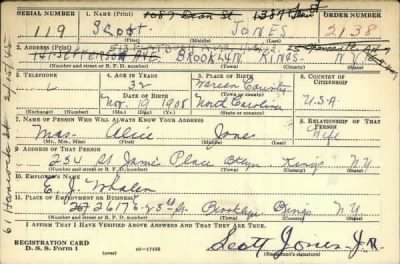 SERIAL NUMBER 1. NAME (Print) 1387 ORDER NUMBER
119 Scott JONES 2138
(First) (Middle) (Last)
2. ADDRESS (Print)
JEFFERSON AVE. BROOKLYN KINGS N.Y.
(Number and street or R. F. D. number) (Town) (County) (State)
3. TELEPHONE 4. AGE IN YEARS 5. PLACE OF BIRTH 6. COUNTRY OF CITIZENSHIP
32 County
DATE OF BIRTH (Town or county)
Nov. 19 1908 North Carolina U.S.A.
(Exchange) (Number) (Mo.) (Day) (Yr.) (State or country)
7. NAME OF PERSON WHO WILL ALWAYS KNOW YOUR ADDRESS 8. RELATIONSHIP OF THAT PERSON
Mrs. Alice Jones Wife
(Mr., Mrs., Miss) (First) (Middle) (Last)
9. ADDRESS OF THAT PERSON
234 St. James Place Bklyn Kings N.Y.
(Number and street or R. F. D. number) (Town) (County) (State)
10. EMPLOYER'S NAME
E. J. Whalen
11. PLACE OF EMPLOYMENT OR BUSINESS
Brooklyn Kings N.Y.
(Number and street or R. F. D. number) (Town) (County) (State)
I AFFIRM THAT I HAVE VERIFIED ABOVE ANSWERS AND THAT THEY ARE TRUE.
REGISTRATION CARD
D. S. S. Form 1 (over) 16—17105 Scott Jones Jr.
(Registrant's signature)
61 Hancock St 2/15/45